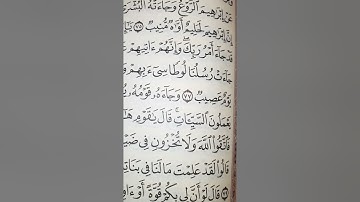 عَنْ إِبْرَٰهِيمَ ٱلرَّوْعُ وَجَآءَتْهُ ٱلْبُشْرَ
إِنَّ إِبْرَٰهِيمَ لَحَلِيمٌ أَوَّٰهٌ مُّنِيبٌ ٧٥
قَدْ جَآءَ أَمْرُ رَبِّكَ ۖ وَإِنَّهُمْ ءَاتِيهِمْ
جَآءَتْ رُسُلُنَا لُوطًا سِىٓءَ بِهِمْ وَ
يَوْمٌ عَصِيبٌ ٧٧ وَجَآءَهُۥ قَوْمُهُۥ
يَعْمَلُونَ ٱلسَّيِّـَٔاتِ ۚ قَالَ يَٰقَوْمِ هَٰ
فَٱتَّقُوا۟ ٱللَّهَ وَلَا تُخْزُونِ فِى ضَيْ
قَالُوا۟ لَقَدْ عَلِمْتَ مَا لَنَا فِى بَنَاتِ
قَالَ لَوْ أَنَّ لِى بِكُمْ قُوَّةً أَوْ ءَاوِ